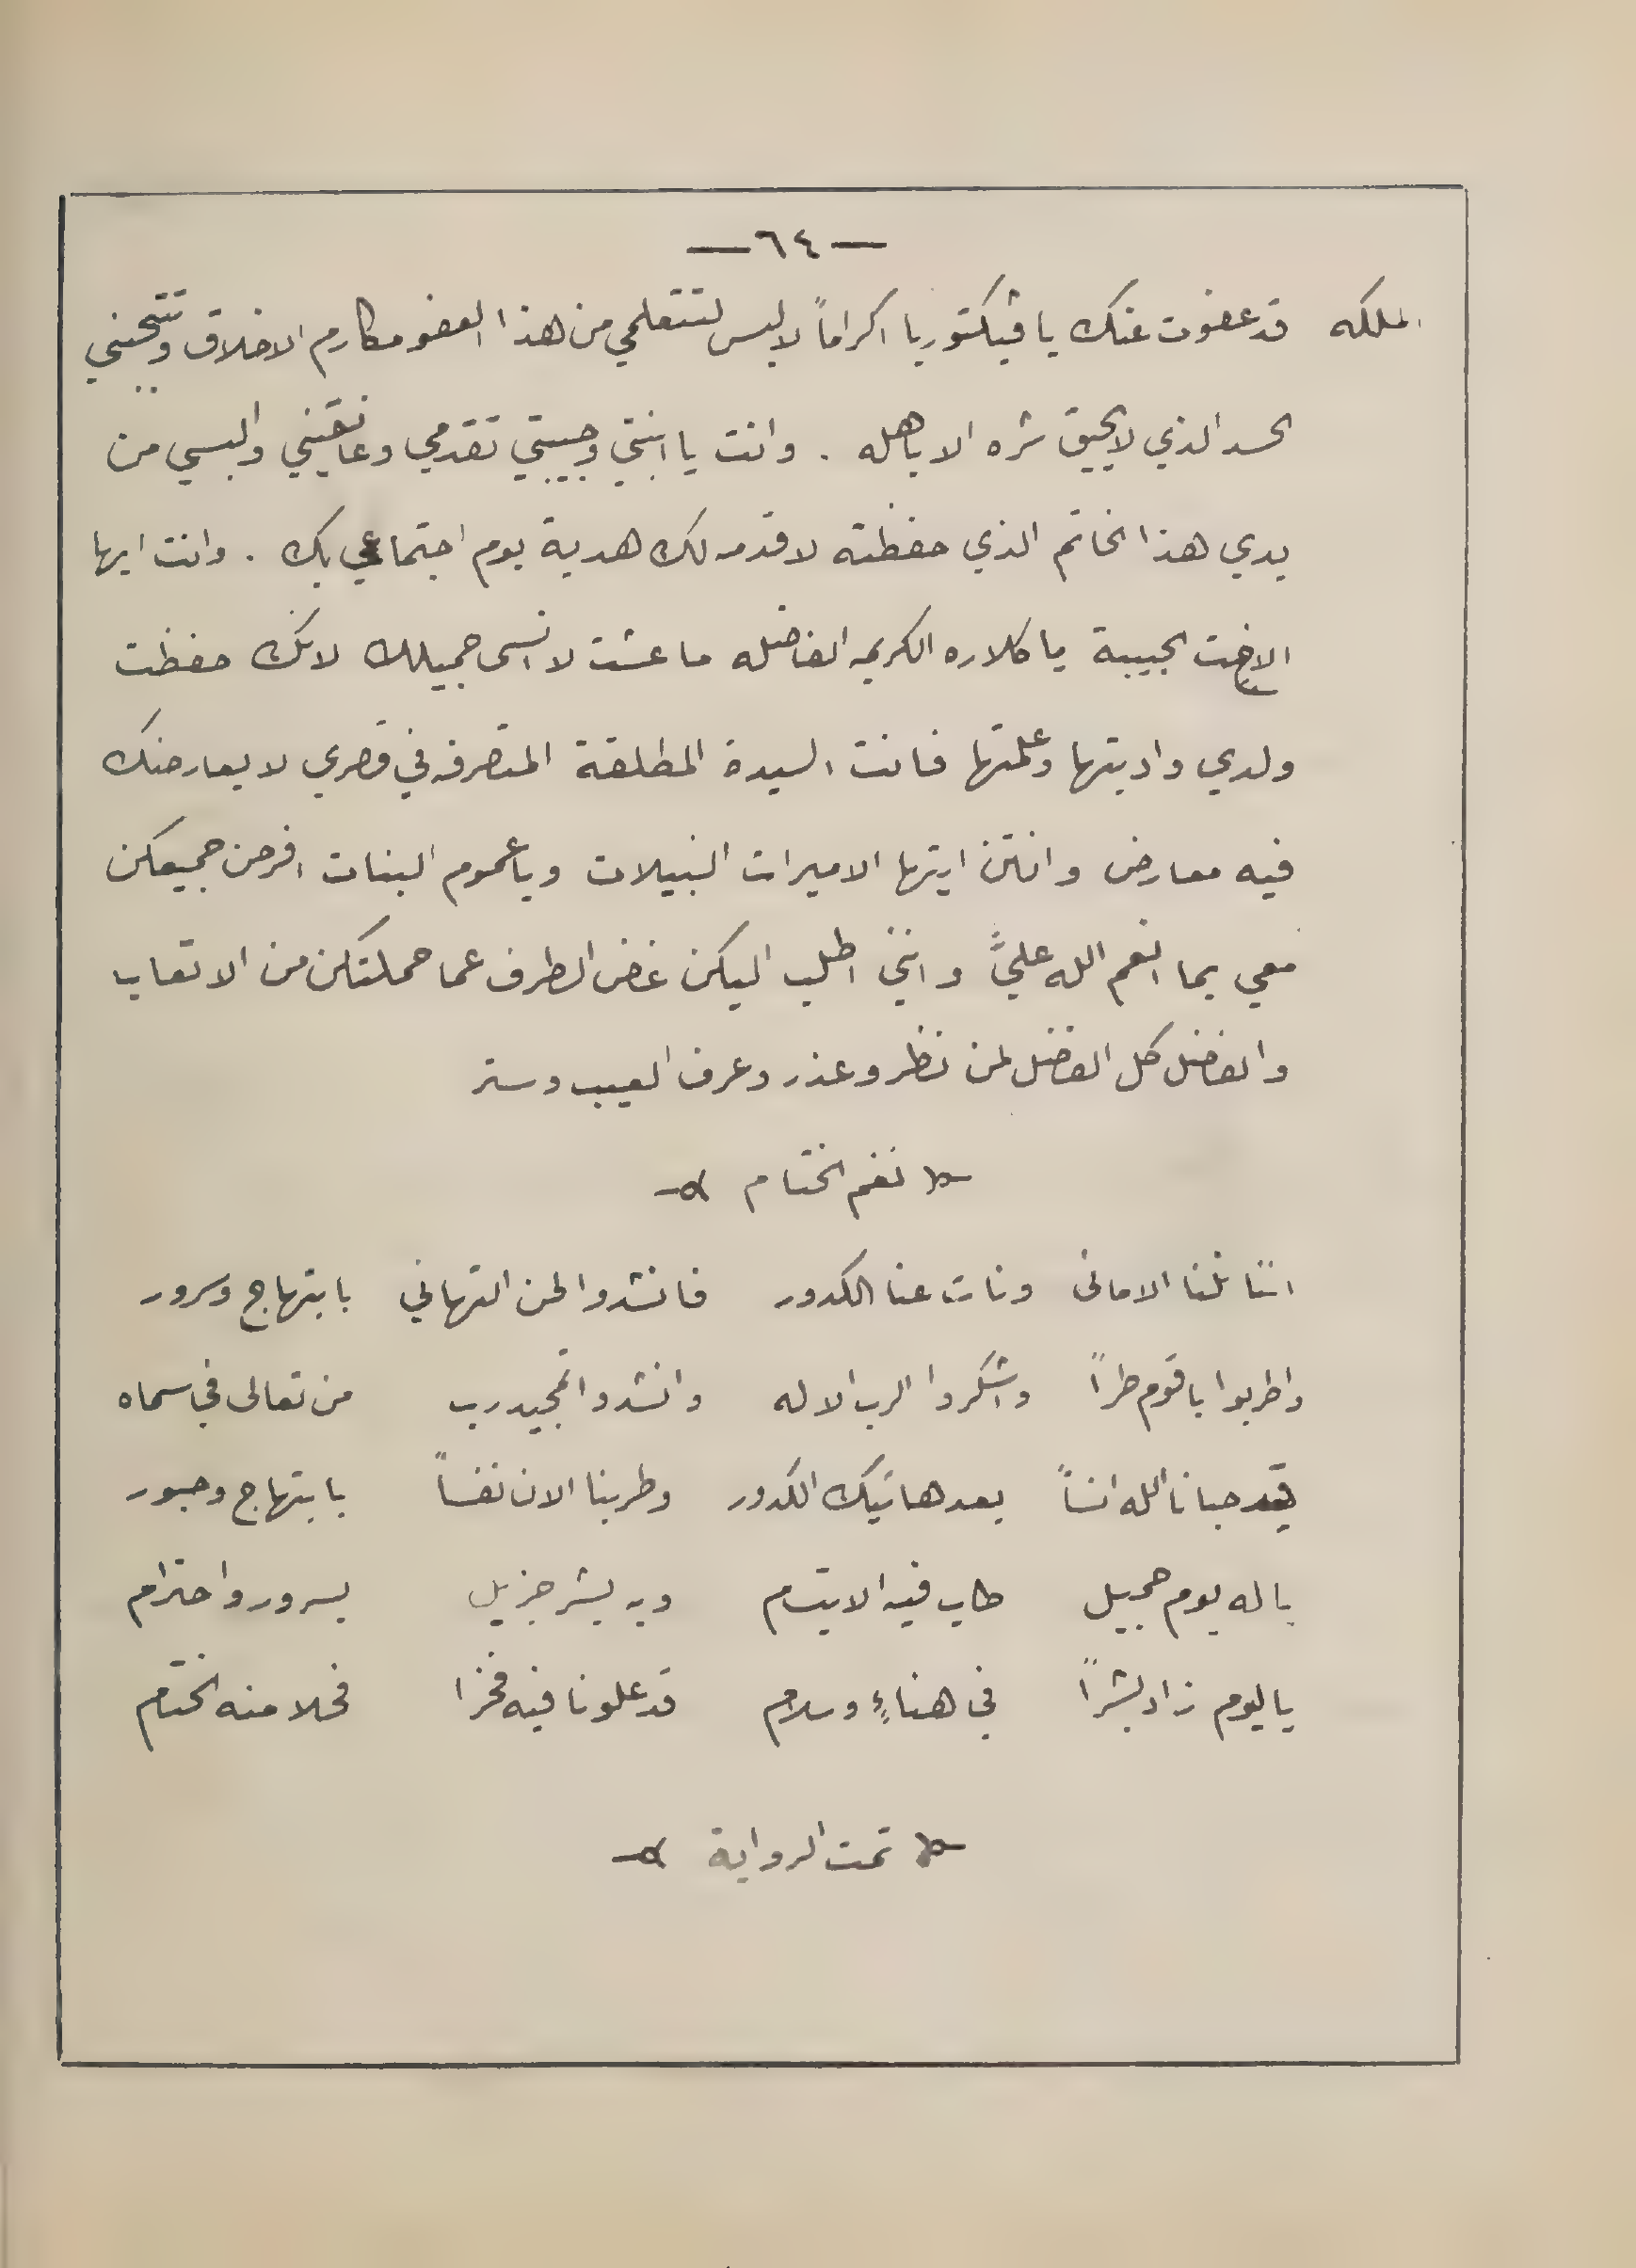 — ٦٤ —
الملكه قد عفوت عنك يا فيكتوريا اكراماً لاليس لتتعلمي من هذا العفو مكارم الاخلاق وتتجنبي
الحسد الذي لا يحيق شره الا باهله . وانت يا ابنتي وحبيبتي تقدمي وعانقيني والبسي من
يدي هذا الخاتم الذي حفظته لاقدمه لك هدية يوم اجتماعي بك . وانت ايها
الاخت الحبيبة يا كلاره الكريمه الفاضله ما عشت لا انسى جميلك لانك حفظت
ولدي واديتها وعلمتها فانت السيدة المطلقة المتصرفه في قصري لا يعارضك
فيه معارض وانتن ايتها الاميرات النبيلات ويا عموم البنات افرحن جميعكن
معي بما انعم الله عليَّ وانني اطلب اليكن غض الطرف عما حملتكن من الاتعاب
والفضل كل الفضل لمن نظر وعذر وعرف العيب وستر
نغم الختام
اننا نلنا الامانى ونات عنا الكدور فانشدوا لحن التهاني بابتهاج وسرور
واطربوا يا قوم طراً واشكروا الرب الاله وانشدوا تمجيد رب من تعالى في سماه
قد حبانا الله انساً بعد هاتيك الكدور وطربنا الان نفساً بابتهاج وحبور
ياله يوم جميل طاب فيه الابتسام وبه بشر جزيل بسرور واحترام
يا ليوم زاد بشراً في هناءٍ وسلام قد علونا فيه فخرا فحلا منه الختام
تمت الرواية